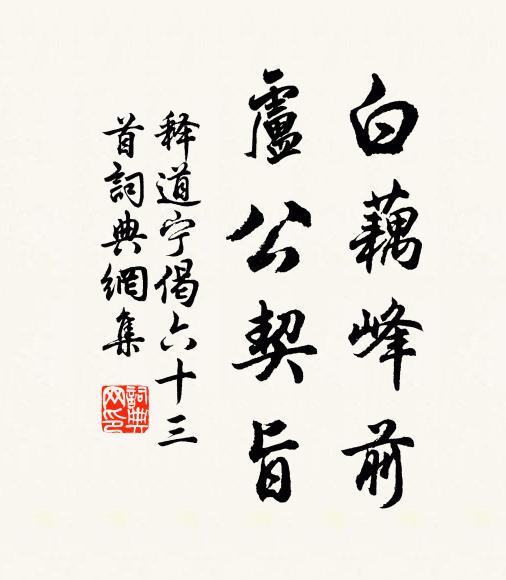 白藕峰前
盧公契旨
释道宁偈六十三
首詞典網集
詞典
网印